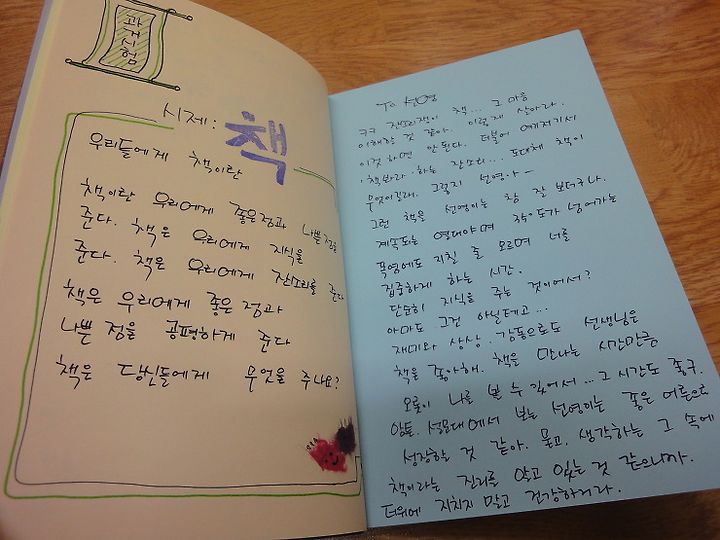 과거시험
시제: 책
우리들에게 책이란
책이란 우리에게 좋은점과 나쁜점을
준다. 책은 우리에게 지식을
준다. 책은 우리에게 잔소리를 준다
책은 우리에게 좋은 점과
나쁜 점을 공평하게 준다
책은 당신들에게 무엇을 주나요?
To 선영
ㅋㅋ 잔소리쟁이 책... 그 마음
이해할 것 같아. 이렇게 살아라.
이것 하면 안 된다. 더불어 여기저기서
책봐라. 하는 잔소리... 도대체 책이
무엇이길래. 그렇지 선영아~
그런 책을 선영이는 참 잘 보더구나.
계속되는 열대야며 35°도가 넘어가는
폭염에도 지칠 줄 모르며 너를
집중하게 하는 시간.
단순히 지식을 주는 것이어서?
아마도 그건 아닐테고...
재미와 상상. 감동으로도 선생님은
책을 좋아해. 책을 만나는 시간만큼
오롯이 나를 볼 수 있어서... 그 시간도 좋구.
암튼. 성문대에서 보는 선영이는 좋은 어른으로
성장할 것 같아. 묻고. 생각하는 그 속에
책이라는 진리를 알고 있는 것 같으니까.
더위에 지치지 말고 건강하거라.